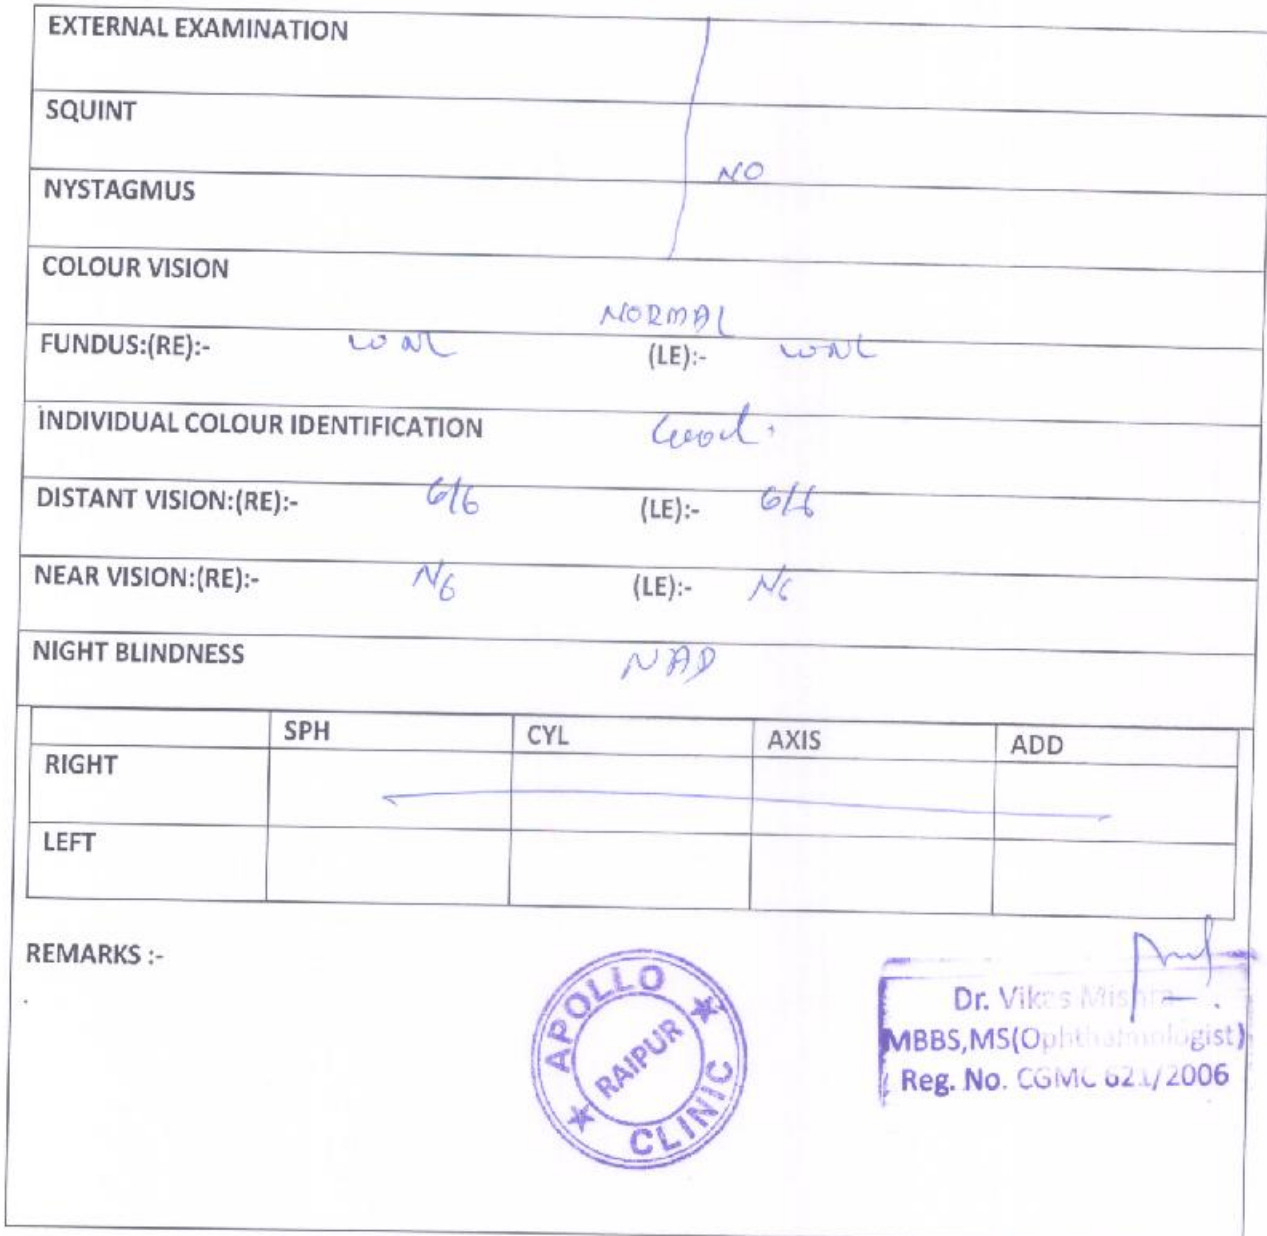 EXTERNAL EXAMINATION
SQUINT
NO
NYSTAGMUS
COLOUR VISION
NORMAL
FUNDUS:(RE):- WNL (LE):- WNL
INDIVIDUAL COLOUR IDENTIFICATION Good.
DISTANT VISION:(RE):- 6/6 (LE):- 6/6
NEAR VISION:(RE):- N6 (LE):- N6
NIGHT BLINDNESS NAD
SPH CYL AXIS ADD
RIGHT
LEFT
REMARKS :-
APOLLO
RAIPUR
CLINIC
Dr. Vikas Mishra
MBBS,MS(Ophthalmologist)
Reg. No. CGMC 621/2006